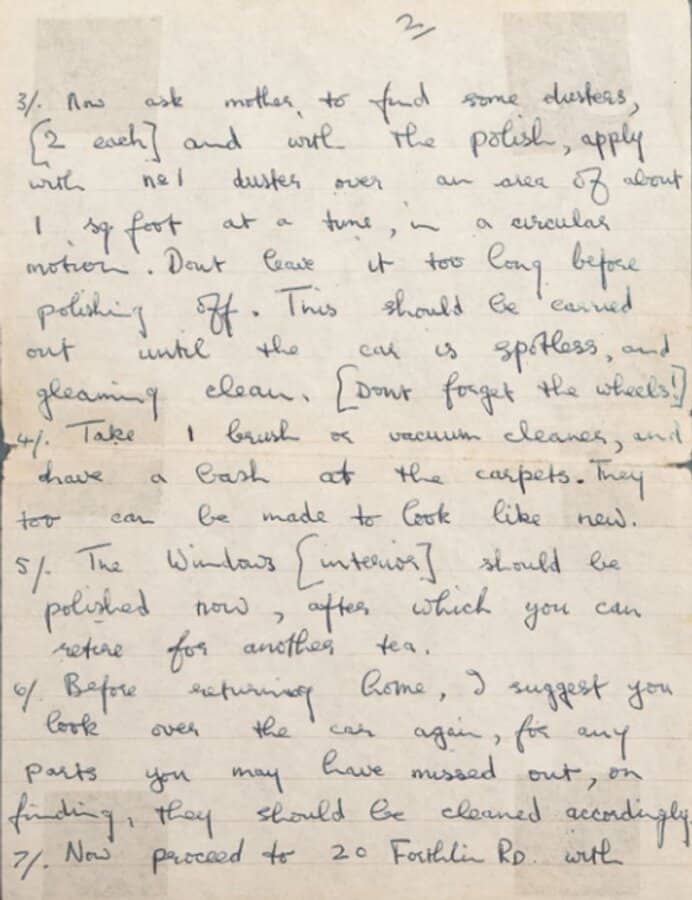 2/
3/. Now ask mother, to find some dusters,
[2 each] and with the polish, apply
with no1 duster over an area of about
1 sq foot at a time, in a circular
motion. Dont leave it too long before
polishing off. This should be carried
out until the car is spotless, and
gleaming clean. [Dont forget the wheels!]
4/. Take 1 brush or vacuum cleaner, and
have a bash at the carpets. They
too can be made to look like new.
5/. The Windows [interior] should be
polished now, after which you can
retire for another tea.
6/. Before returning home, I suggest you
look over the car again, for any
parts you may have missed out, on
finding, they should be cleaned accordingly
7/. Now proceed to 20 Forthlin RD. with